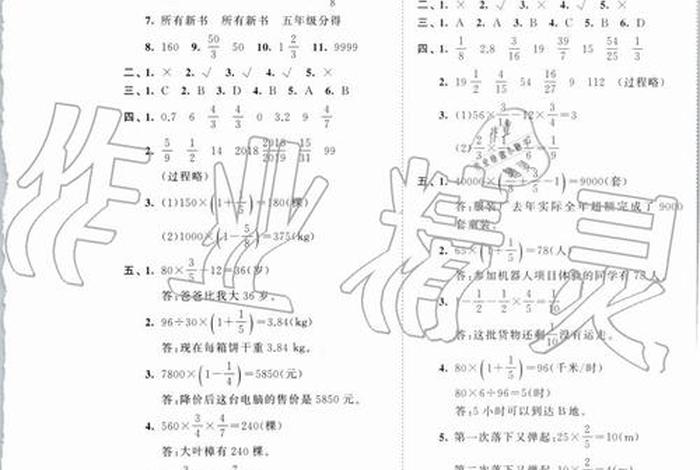 8
7. 所有新书 所有新书 五年级分得
8. 160 9. 50/3 50 10. 1 2/3 11. 9999
二、1. × 2. √ 3. √ 4. √ 5. ×
三、1. C 2. B 3. D 4. B 5. A 6. B
四、1. 0.7 6 4/3 4/3 0 3.2 9 4/7
2. 5/9 1/2 14 2018 2018/2019 15/31 99
(过程略)
3. (1)150×(1+1/5)=180(棵)
(2)1000×(1-5/8)=375(kg)
五、1. 80×3/5-12=36(岁)
答:爸爸比我大 36 岁。
2. 96÷30×(1+1/5)=3.84(kg)
答:现在每箱饼干重 3.84 kg。
3. 7800×(1-1/4)=5850(元)
答:降价后这台电脑的售价是 5850 元。
4. 560×3/4×4/7=240(棵)
答:大叶樟有 240 棵。
3 7
二、1. × 2. √ 3. × 4. √ 5. √
三、1. A 2. A 3. B 4. C 5. B 6. D
四、1. 1/8 2.8 3/16 19 39/7 15 54/25 1/3
2. 19 1/2 4/15 54 16/27 9 112 (过程略)
3. (1)56×3/14-12×3/4=3
(2)2/3×
五、1. -1)=9000(套)
答:服装厂去年实际全年超额完成了 9000
套童装。
2. 65×(1+1/5)=78(人)
答:参加机器人项目体验的同学有 78 人。
3. 1-1/2-1/2×4/5=1/10
答:这批货物还剩1/10没有运走。
4. 80×(1+1/5)=96(千米/时)
80×6÷96=5(时)
答:5 小时可以到达 B 地。
5. 第一次落下又弹起:25×2/5=10(m)
第二次落下又弹起:10×2=4(m)
作业精灵